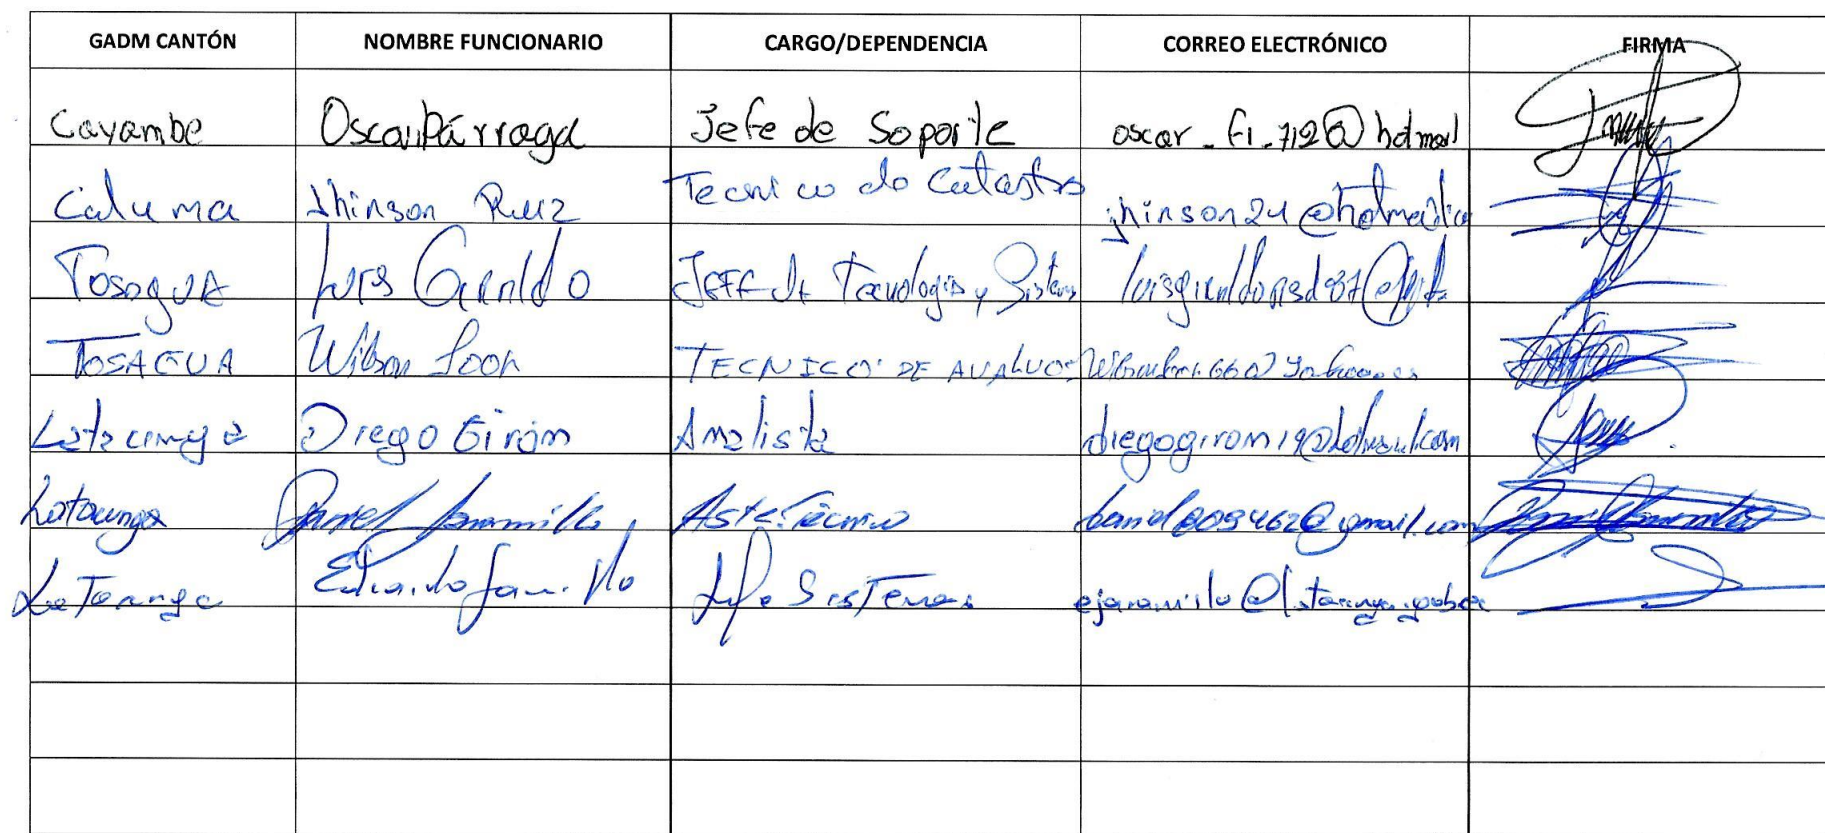 GADM CANTÓN NOMBRE FUNCIONARIO CARGO/DEPENDENCIA CORREO ELECTRÓNICO FIRMA
Cayambe Oscar Párraga Jefe de Soporte oscar_fi_712@hotmail
Caluma Jhinson Ruiz Tecnico de Catastro jhinson24@hotmail.co
Tosagua Luis Giraldo Jefe de Tecnologia y Sistemas
TOSAGUA Wilson Loor TECNICO DE AVALUOS
Latacunga Diego Girón Analista diegogiron19@hotmail.com
Latacunga Daniel Jaramillo Aste. Técnico @gmail.com
Latacunga Eduardo Jaramillo Jefe Sistemas ejaramillo@latacunga.gob.ec